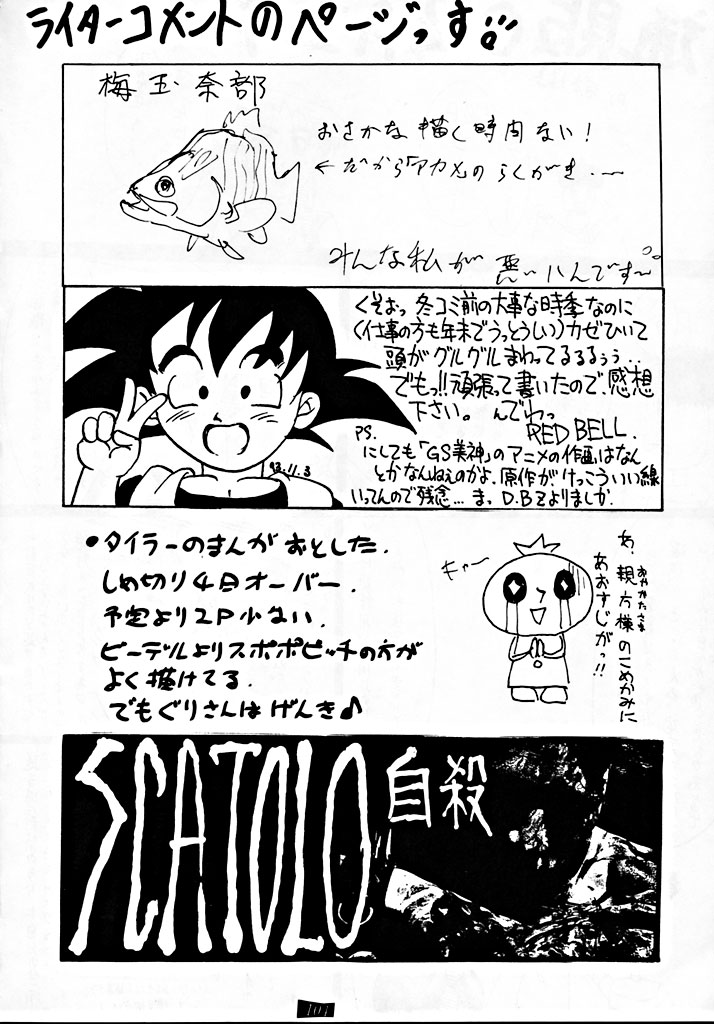 ライターコメントのページっす!!
梅玉奈部
おさかな描く時間ない!
←だから「アカメ」のらくがき・〜
みんな私が悪いんです〜
くそおっ 冬コミ前の大事な時季なのに
(仕事の方も年末でうっとうしい)カゼひいて
頭がグルグルまわってるるるぅぅ・・
でもっ!!頑張って書いたので、感想
下さい。 んでわっ
RED BELL.
PS.
にしても「GS美神」のアニメの作画はなん
とかなんねぇのかよ.原作がけっこういい線
いってんので残念…ま、D.B Zよりましか.
93.11.3
•タイラーのまんがおとした.
しめ切り4日オーバー.
予定より2P少ない.
ビーデルよりスポポビッチの方が
よく描けてる.
でもぐりさんはげんき♪
キャー
あ、親方様のこめかみに
おやかたさま
あおすじがっ!!
SCATOLO 自殺
101